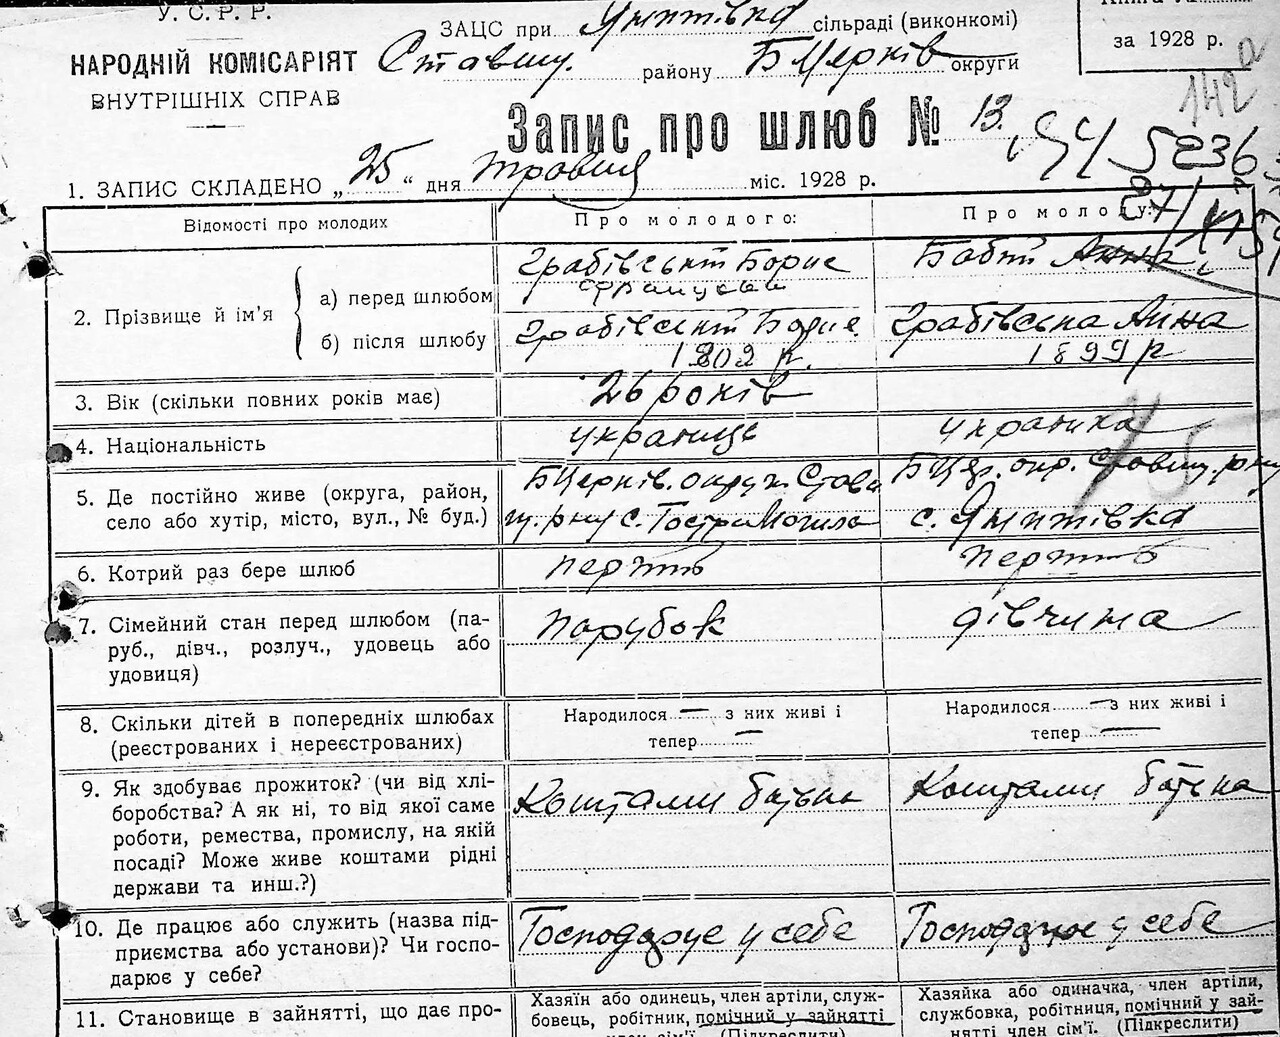 У. С. Р. Р.
НАРОДНІЙ КОМІСАРІЯТ
ВНУТРІШНІХ СПРАВ
ЗАЦС при Яхптівка сільраді (виконкомі)
Ставищ. району БЦерків округи
за 1928 р.
142а
Запис про шлюб № 13.
5236
1. ЗАПИС СКЛАДЕНО „25“ дня травня міс. 1928 р.
Відомості про молодих
Про молодого:
Про молоду:
2. Прізвище й ім’я
а) перед шлюбом
Грабівськт Борис
Бабт Анна
б) після шлюбу
Грабівськт Борис
1902 р.
Грабівська Анна
1899 р
3. Вік (скільки повних років має)
26 років
4. Національність
українць
українка
5. Де постійно живе (округа, район,
село або хутір, місто, вул., № буд.)
БЦерків. округи Стави
щ. р-ну с. Гостра Могила
БЦер. окр. Ставищ. р-ну
с.
6. Котрий раз бере шлюб
7. Сімейний стан перед шлюбом (па-
руб., дівч., розлуч., удовець або
удовиця)
парубок
дівчина
8. Скільки дітей в попередніх шлюбах
(реєстрованих і нереєстрованих)
Народилося — з них живі і
тепер —
Народилося — з них живі і
тепер —
9. Як здобуває прожиток? (чи від хлі-
боробства? А як ні, то від якої саме
роботи, ремества, промислу, на якій
посаді? Може живе коштами рідні
держави та инш.?)
Коштами батька
Коштами батька
10. Де працює або служить (назва під-
приємства або установи)? Чи госпо-
дарює у себе?
Господарує у себе
Господарює у себе
11. Становище в зайнятті, що дає про-
Хазяїн або одинець, член артіли, служ-
бовець, робітник, помічний у зайнятті
член сім’ї. (Підкреслити)
Хазяйка або одиначка, член артіли,
службовка, робітниця, помічний у зай-
нятті член сім’ї. (Підкреслити)